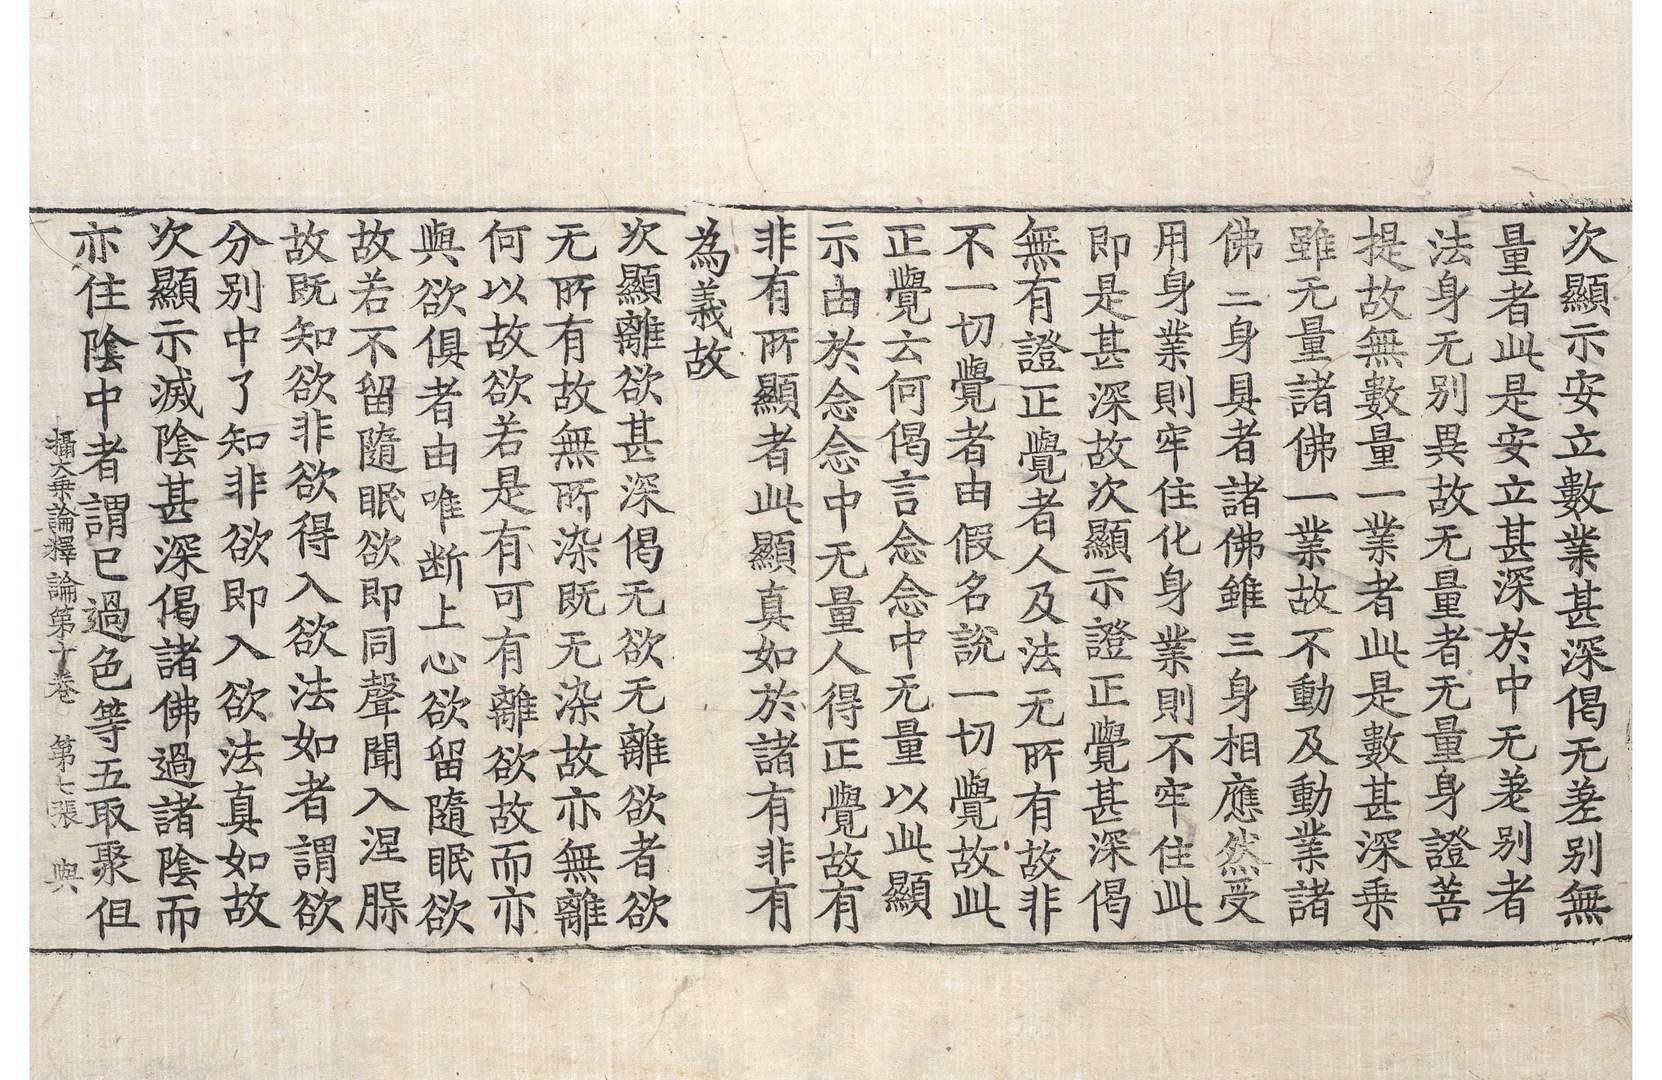 次顯示安立數業甚深偈无差别無
量者此是安立甚深於中无差别者
法身无别異故无量者无量身證菩
提故無數量一業者此是數甚深乗
雖无量諸佛一業故不動及動業諸
佛二身具者諸佛雖三身相應然受
用身業則牢住化身業則不牢住此
即是甚深故次顯示證正覺甚深偈
無有證正覺者人及法无所有故非
不一切覺者由假名說一切覺故此
正覺云何偈言念念中无量以此顯
示由於念念中无量人得正覺故有
非有所顯者此顯真如於諸有非有
為義故
次顯離欲甚深偈无欲无離欲者欲
无所有故無所染既无染故亦無離
何以故欲若是有可有離欲故而亦
與欲俱者由唯断上心欲留隨眠欲
故若不留隨眠欲即同聲聞入涅槃
故既知欲非欲得入欲法如者謂欲
分别中了知非欲即入欲法真如故
次顯示滅陰甚深偈諸佛過諸陰而
亦住陰中者謂已過色等五取聚但
攝大乗論釋論第十卷 第七張 與